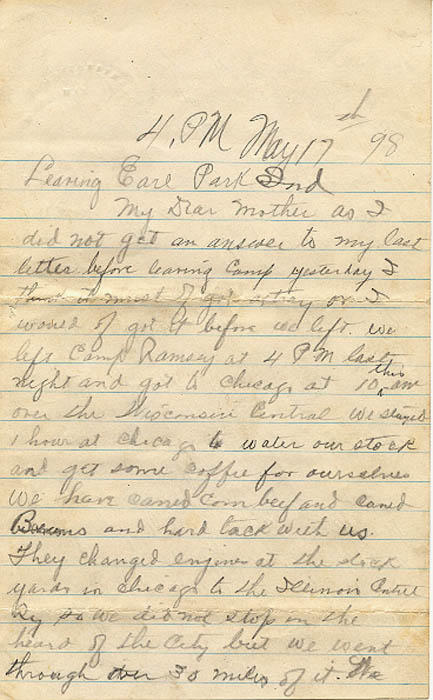 4. PM May 17th 98
Leaving Earl Park Ind
My Dear Mother as I
did not get an answer to my last
letter before leaving Camp yesterday I
think it must of got astray or I
would of got it before we left. We
left Camp Ramsey at 4 PM last
night and got to Chicago at 10 this am
over the Wisconsin Central We stayed
1 hour at Chicago to water our stock
and get some coffee for ourselves
We have caned corn beef and caned
Beans and hard tack with us.
They changed engines at the stock
yards in Chicago to the Illinois
Ry so we did not stop in the
heard of the City but we went
through over 30 miles of it. We